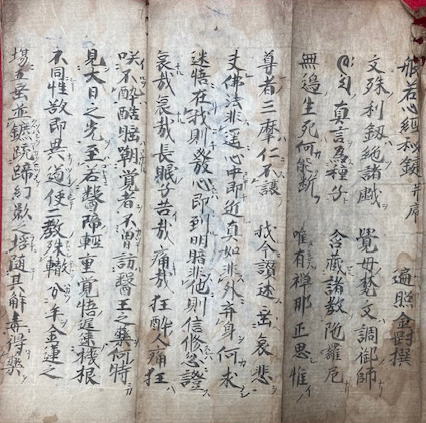 般若心經秘鍵 并序
遍照金剛撰
文殊利劔絶諸戯 覺母梵文調御師
真言為種子 含藏諸教陀羅尼
無邊生死何能断 唯有禅那正思惟
尊者三摩仁不讓 我今讃述垂哀悲
夫佛法非遥心中即近真如非外弃身何求
迷悟在我則發心即到明暗非他則信修忽證
哀哉哀哉長眠子苦哉痛哉狂酔人痛狂
咲不酔酷睡嘲覺者不曽訪醫王之藥何時
見大日之光至若翳障軽重覺悟遅速機根
不同性欲即異遂使二教殊轍分手金蓮之
場五乗並鑣踠蹄幻影之埒随其解毒得藥